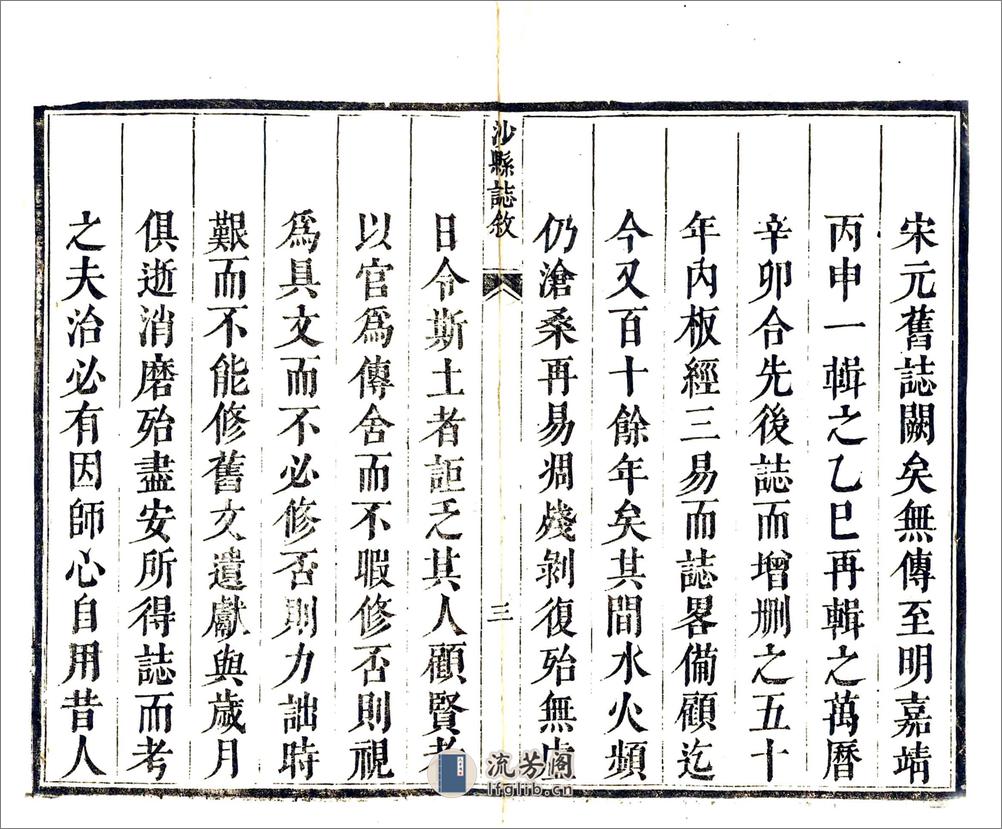 宋元舊誌闕矣無傳至明嘉靖
丙申一輯之乙巳再輯之萬曆
辛卯合先後誌而增刪之五十
年內板經三易而誌畧備顧迄
今又百十餘年矣其間水火頻
仍滄桑再易凋殘剝復殆無虛
沙縣誌敘
三
日令斯土者詎乏其人顧賢者
以官爲傳舍而不暇修否則視
爲具文而不必修否則力詘時
艱而不能修舊文遺獻與歲月
俱逝消磨殆盡安所得誌而考
之夫治必有因師心自用昔人
流芳阁
lfglib.cn